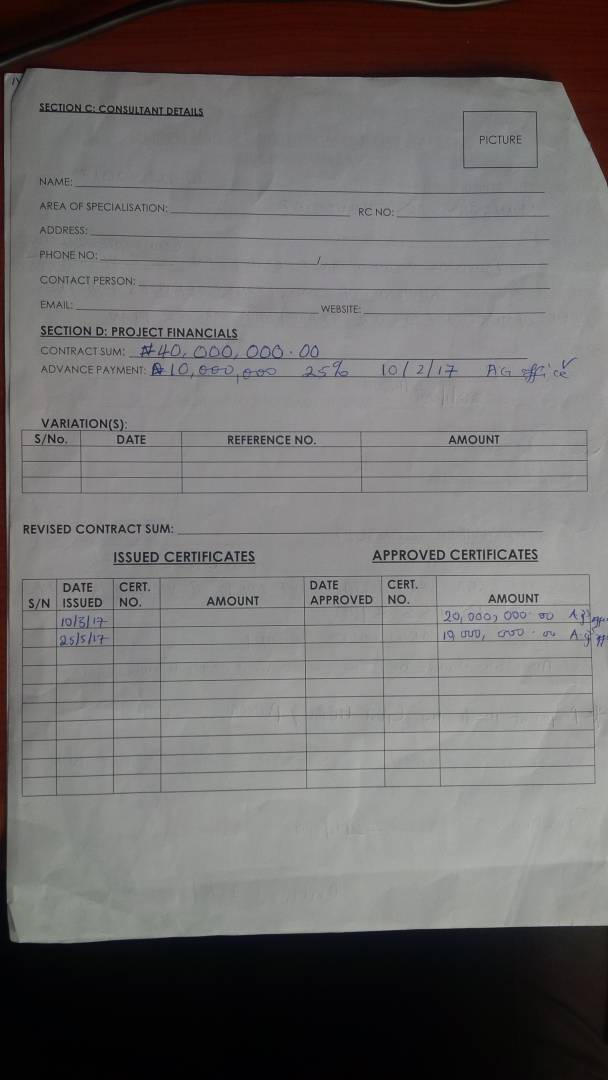 SECTION C: CONSULTANT DETAILS
PICTURE
NAME:
AREA OF SPECIALISATION: RC NO:
ADDRESS:
PHONE NO: /
CONTACT PERSON:
EMAIL: WEBSITE:
SECTION D: PROJECT FINANCIALS
CONTRACT SUM: ₦40,000,000.00
ADVANCE PAYMENT: ₦10,000,000 25% 10/2/17 AG office ✓
VARIATION(S):
S/No. DATE REFERENCE NO. AMOUNT
REVISED CONTRACT SUM:
ISSUED CERTIFICATES APPROVED CERTIFICATES
S/N DATE ISSUED CERT. NO. AMOUNT DATE APPROVED CERT. NO. AMOUNT
10/3/17 20,000,000.00 AG office
25/5/17 10,000,000.00 A.G off